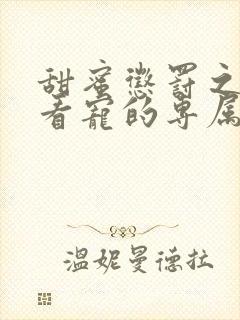 甜蜜惩罚之
看宠的专属
温妮曼德拉